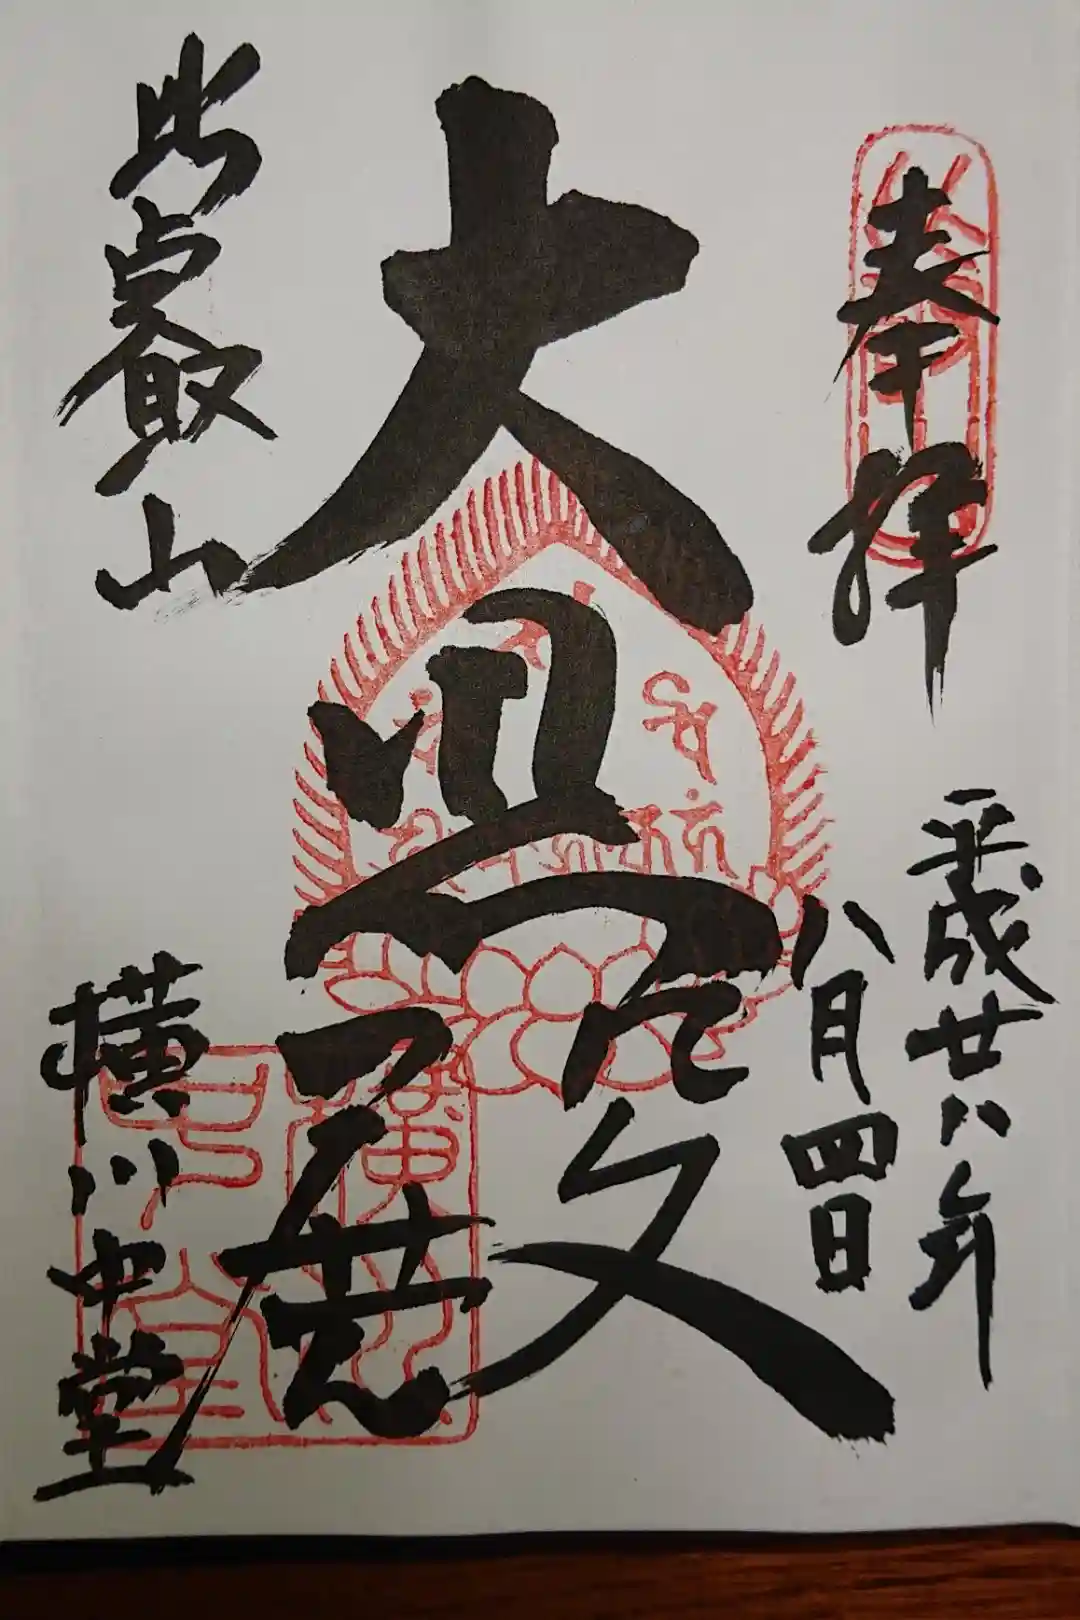 奉拝
平成廿八年
八月四日
大悲殿
比叡山
横川中堂
横川
中堂